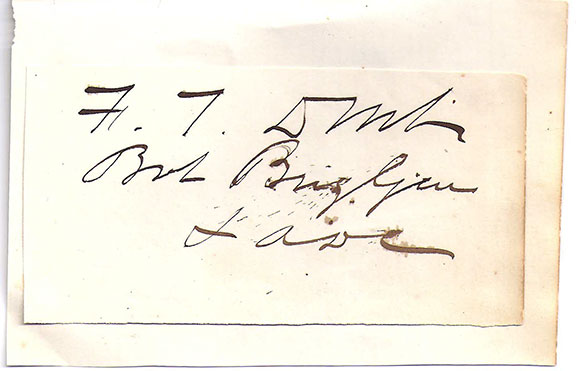 F. T. Dent
Bvt Brig Gen
& adc